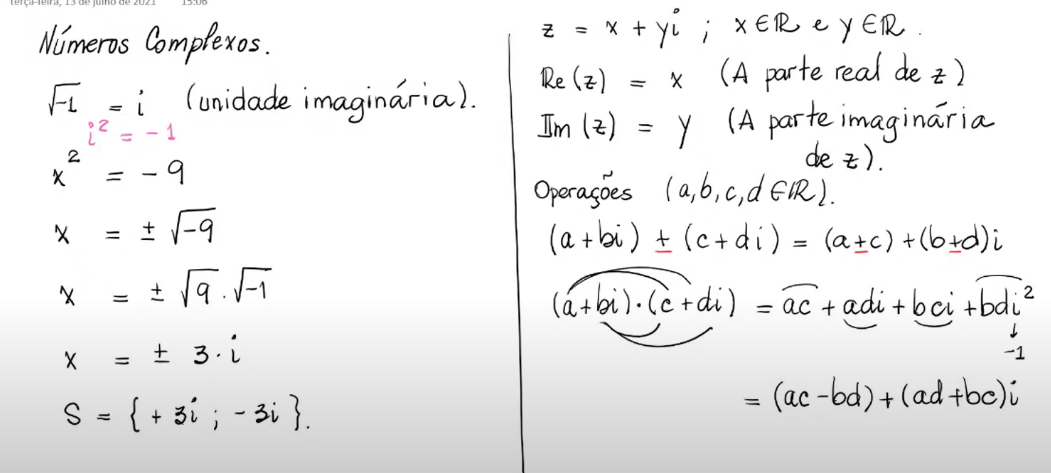 terça-feira, 13 de julho de 2021 15:06
Números Complexos.
√-1 = i (unidade imaginária).
i² = -1
x² = -9
x = ± √-9
x = ± √9 . √-1
x = ± 3 · i
S = { + 3i ; - 3i }.
z = x + yi ; x ∈ ℝ e y ∈ ℝ.
Re(z) = x (A parte real de z)
Im(z) = y (A parte imaginária
de z).
Operações (a,b,c,d ∈ ℝ).
(a+bi) ± (c+di) = (a±c) + (b±d)i
(a+bi)·(c+di) = ac + adi + bci + bdi²
↓
-1
= (ac-bd) + (ad+bc)i